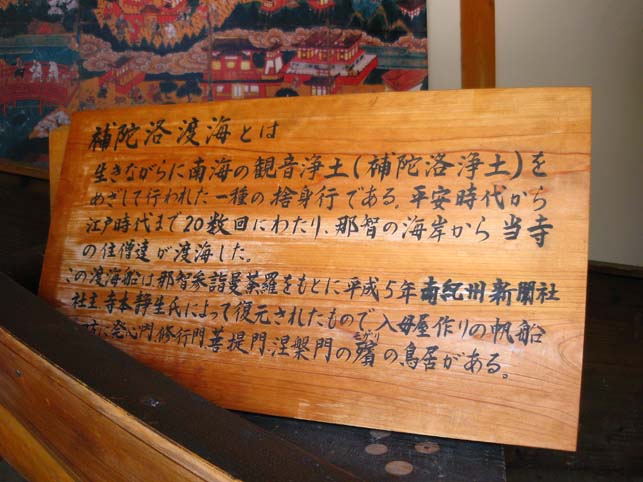 補陀洛渡海とは
生きながらに南海の観音浄土(補陀洛浄土)を
めざして行われた一種の捨身行である。平安時代から
江戸時代まで20数回にわたり、那智の海岸から当寺
の住僧達が渡海した。
この渡海船は那智参詣曼荼羅をもとに平成5年南紀州新聞社
社主寺本静生氏によって復元されたもので入母屋作りの帆船
に発心門、修行門、菩提門、涅槃門の殯の鳥居がある。